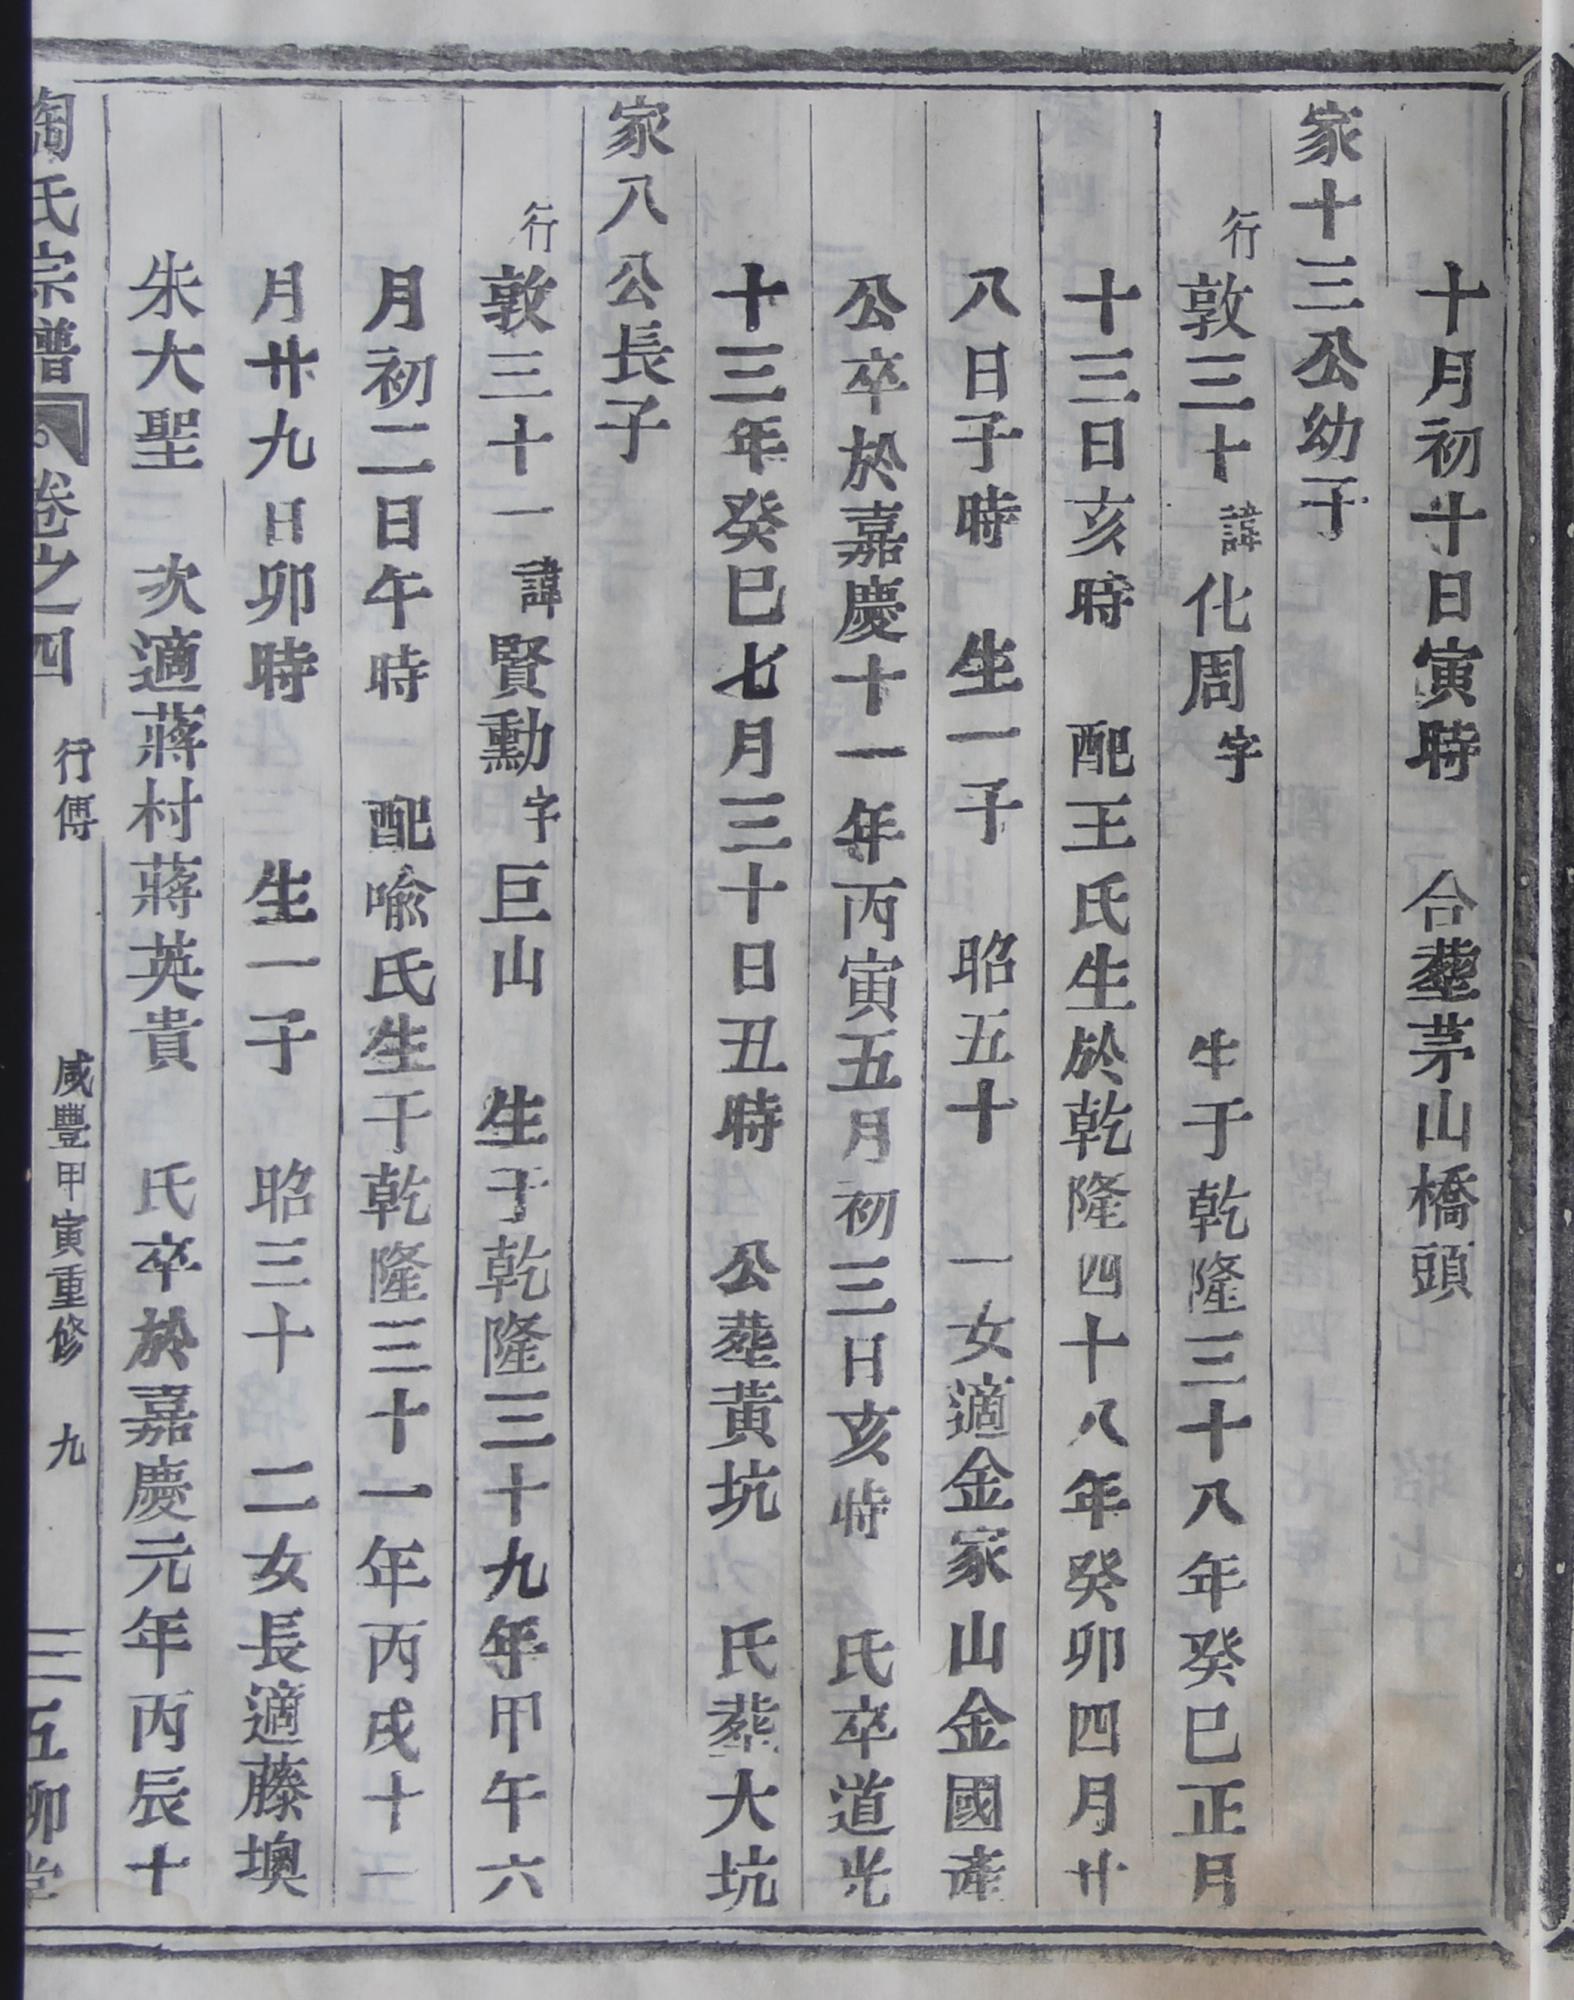 十月初十日寅時　合塟茅山橋頭
家十三公幼子
行敦三十諱化周字　生于乾隆三十八年癸巳正月
十三日亥時　配王氏生於乾隆四十八年癸卯四月廿
八日子時　生一子　昭五十　一女適金家山金國產
公卒於嘉慶十一年丙寅五月初三日亥時　氏卒道光
十三年癸巳七月三十日丑時　公塟黃坑　氏塟大坑
家八公長子
行敦三十一諱賢勳字巨山　生于乾隆三十九年甲午六
月初二日午時　配喩氏生于乾隆三十一年丙戌十一
月廿九日卯時　生一子　昭三十　二女長適藤墺
朱大聖　次適蔣村蔣英貴　氏卒於嘉慶元年丙辰十
陶氏宗譜　卷之四　行傳　咸豐甲寅重修　九　五柳堂